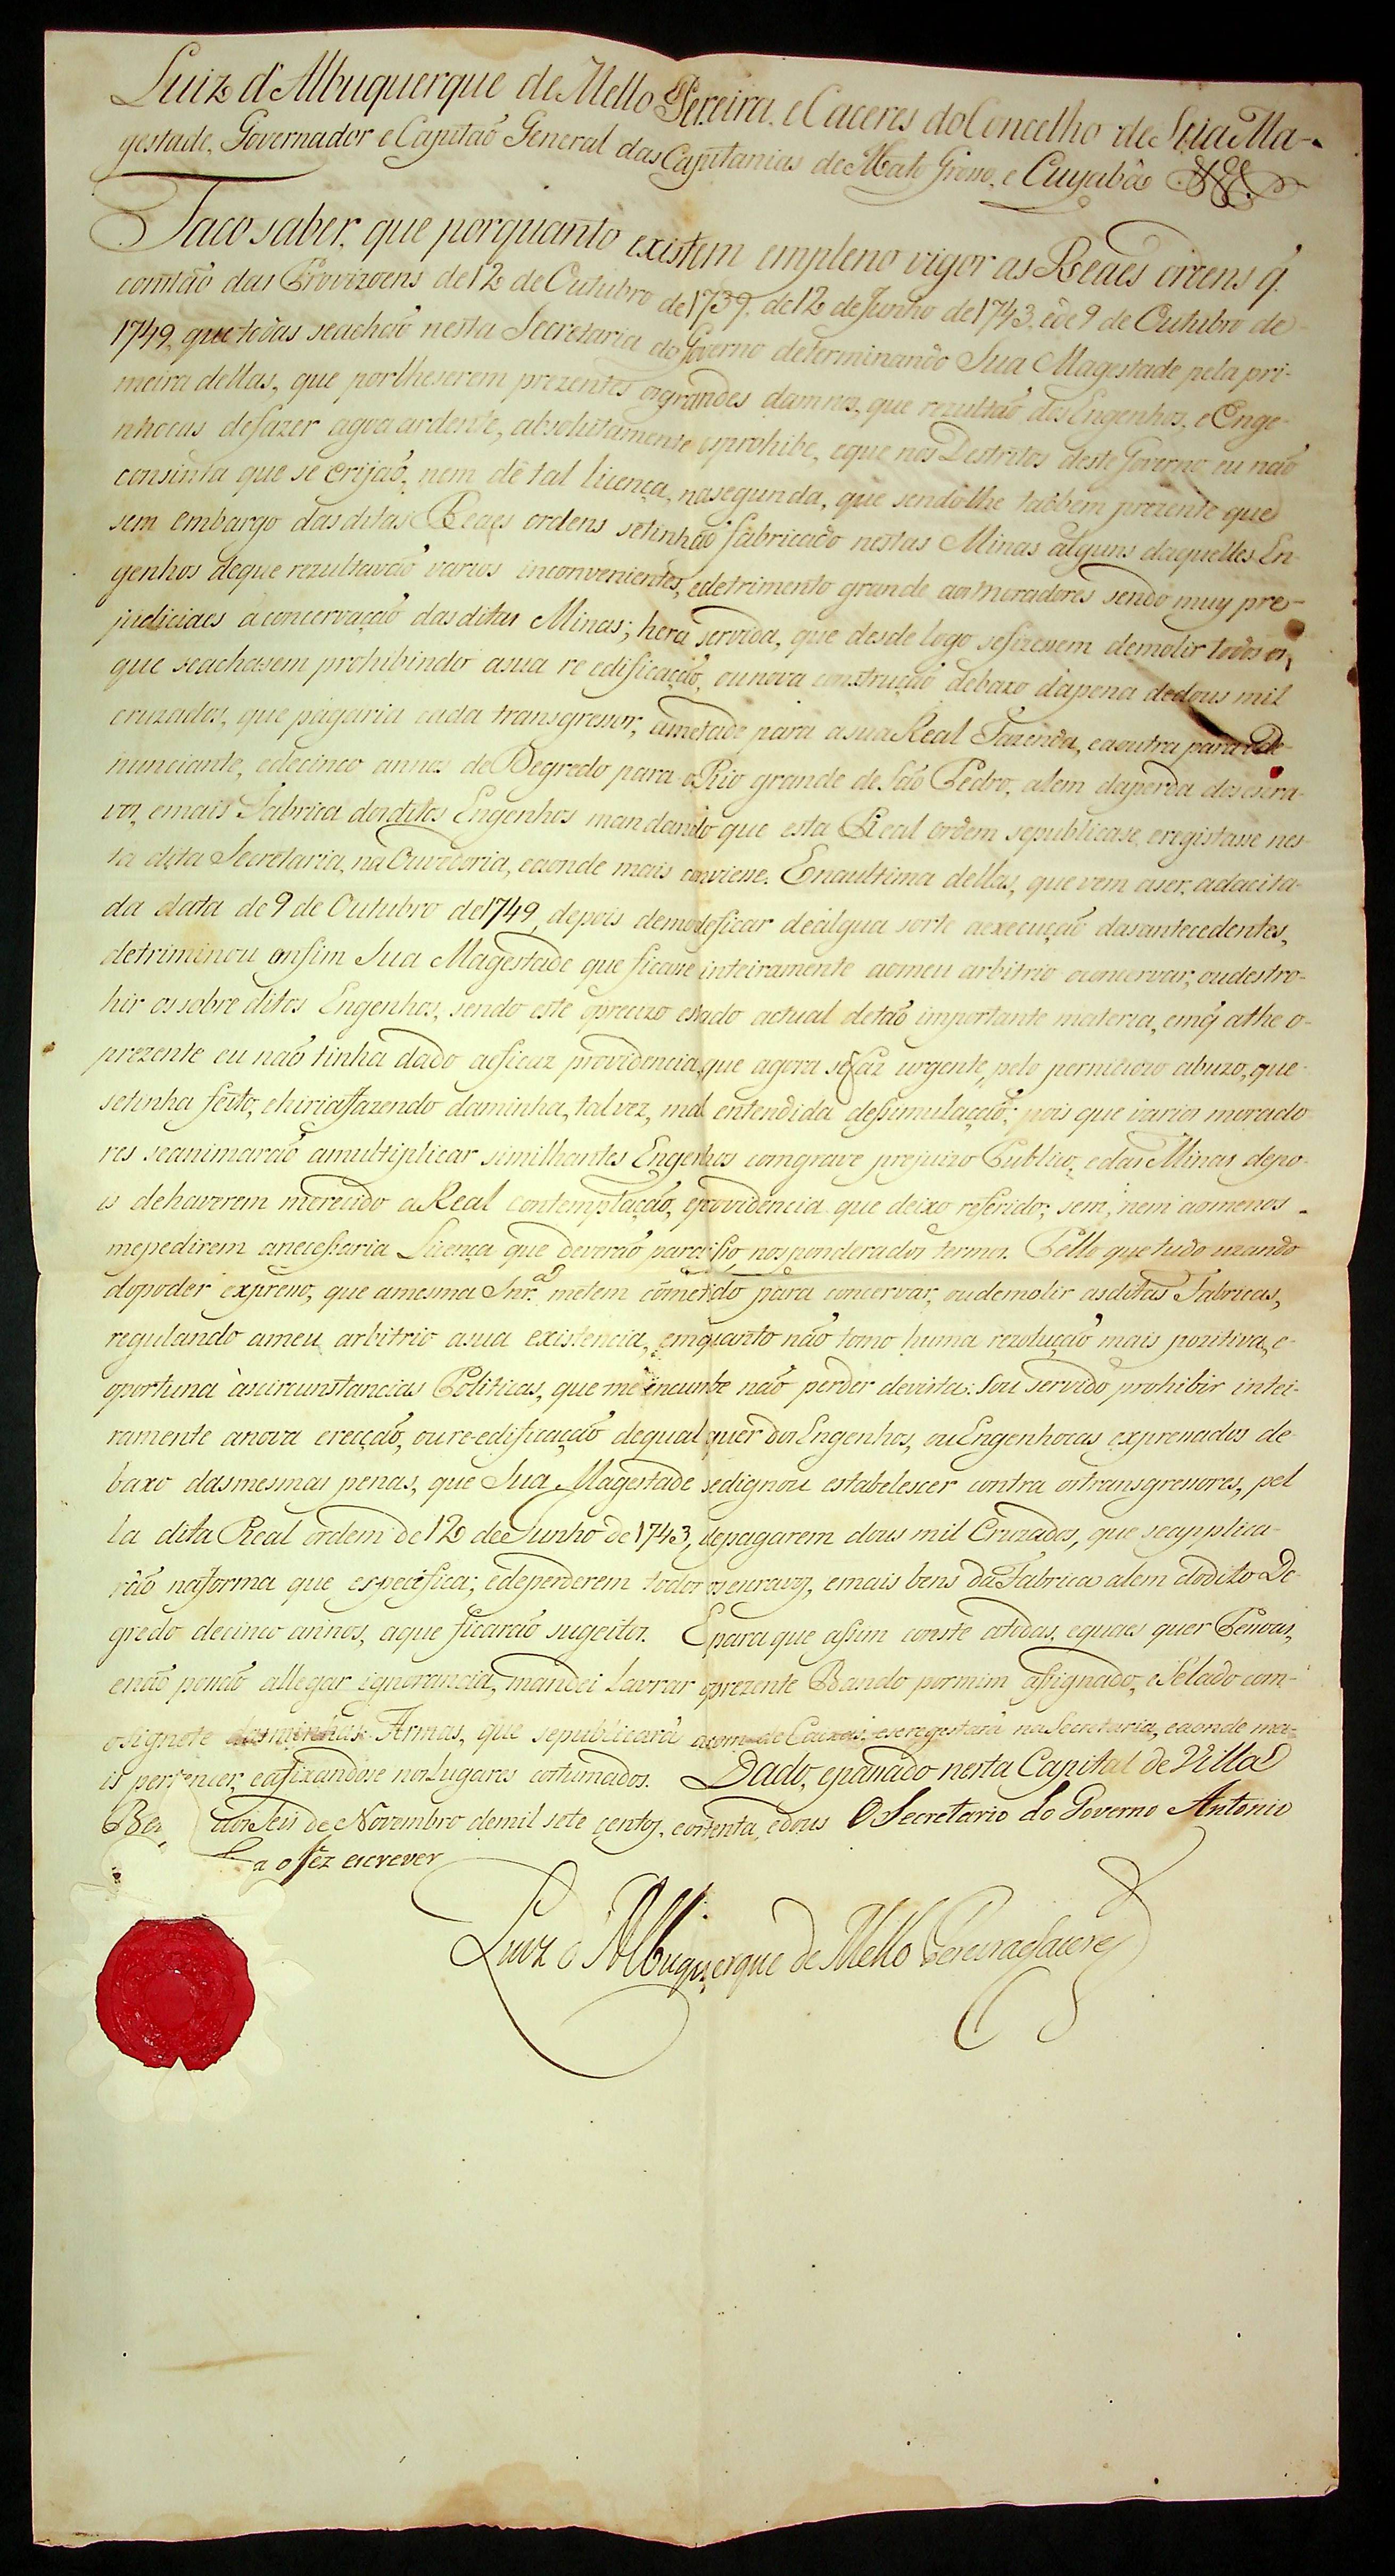 Luiz d'Albuquerque de Mello Pereira, e Caceres do Concelho de Sua Ma-
gestade, Governador e Capitaõ General das Capitanias de Mato Groso, e Cuyabâ
Faco saber, que porquanto existem empleno vigor as Reaes ordens q̃
constaõ das Provizoens de 12 de Outubro de 1739, de 12 de Junho de 1743, ede 9 de Outubro de
1749, que todas seachaõ nesta Secretaria do Governo determinando Sua Magestade pela pri-
meira dellas, que porlheserem prezentes osgrandes damnos, que rezultaõ dos Engenhos, e Enge-
nhocas defazer agoa ardente, absolutamente osprohibe, eque nos Destritos deste Governo eu naõ
consinta que se erijaõ, nem dê tal licença, nasegunda, que sendolhe tabbem prezente que
sem embargo dasditas Reaes ordens setinhaõ fabricado nestas Minas alguns daquelles En-
genhos deque rezultavaõ varios inconvenientes, edetrimento grande aosmoradores sendo muy pre-
judiciaes aconcervaçaõ dasditas Minas; hera servida, que desde logo sefizesem demolir todos os,
que seachasem prohibindo asua re edificaçaõ, ounova construçaõ debaxo dapena dedous mil
cruzados, que pagaria cada transgresor, ametade para asua Real Fazenda, eaoutra para ode-
nunciante, edecinco annos de Degredo para o Rio grande de Saõ Pedro, alem daperda dos escra-
vos, emais Fabrica dosditos Engenhos mandando que esta Real ordem sepublicase, eregistasse nes-
ta dita Secretaria, na Ouvidoria, eaonde mais conviese. Enaultima dellas, que vem aser, adacita-
da data de 9 de Outubro de 1749, depois demodeficar dealgua sorte aexecuçaõ dasantecedentes,
detriminou emfim Sua Magestade que ficase inteiramente aomeu arbitrio oconcervar, oudestro-
hir ossobre ditos Engenhos, sendo este oprecizo estado actual detaõ importante materia, emq̃ athe o-
prezente eu naõ tinha dado aeficaz providencia, que agora sefaz urgente, pelo pernicioso abuzo, que-
setinha feito, ehiriafazendo daminha, talvez, mal entendida desimulaçaõ; pois que varios morado
res seanimaraõ amultiplicar similhantes Engenhos comgrave prejuizo Publico, edas Minas depo-
is dehaverem merecido a Real contemplaçaõ, eprovidencia que deixo referido; sem, nem aomenos
mepedirem anecessaria Licença que deveraõ para isso, nosponderados termos. Pello que tudo uzando
dopoder expreso, que amesma Snr.ª metem cometido para concervar, oudemolir asditas Fabricas,
regulando ameu arbitrio asua existencia, emquanto naõ tomo huma rezoluçaõ mais pozitiva, e-
oportuna àscircunstancias Politicas, que me incumbe naõ perder devista: Sou servido prohibir intei-
ramente anova erecçaõ, oure-edificaçaõ dequal quer dos Engenhos, ouEngenhocas expresados de
baxo dasmesmas penas, que Sua Magestade sedignou estabelescer contra ostransgresores, pel
la dita Real ordem de 12 de Junho de 1743, depagarem dous mil Cruzados, que seapplica-
raõ naforma que especefica; edeperderem todos osescravos, emais bens da Fabrica alem dodito De-
gredo decinco annos, aque ficaraõ sugeitos. Epara que assim conste atodas, equaes quer Pesoas,
enaõ posaõ allegar ignorancia, mandei Lavrar oprezente Bando pormim assignado, eSelado com-
osignete dasminhas Armas, que sepublicarà asom de Caixas, eseregestarà na Secretaria, eaonde ma-
is pertencer, eafixandose nosLugares costumados. Dado, epasado nesta Capital de Villa
Be aos Seis de Novembro demil sete centos, eoitenta, edous O Secretario do Governo Antonio
a o fêz escrever
Luiz d'Albuquerque de Mello Pereira e Caceres